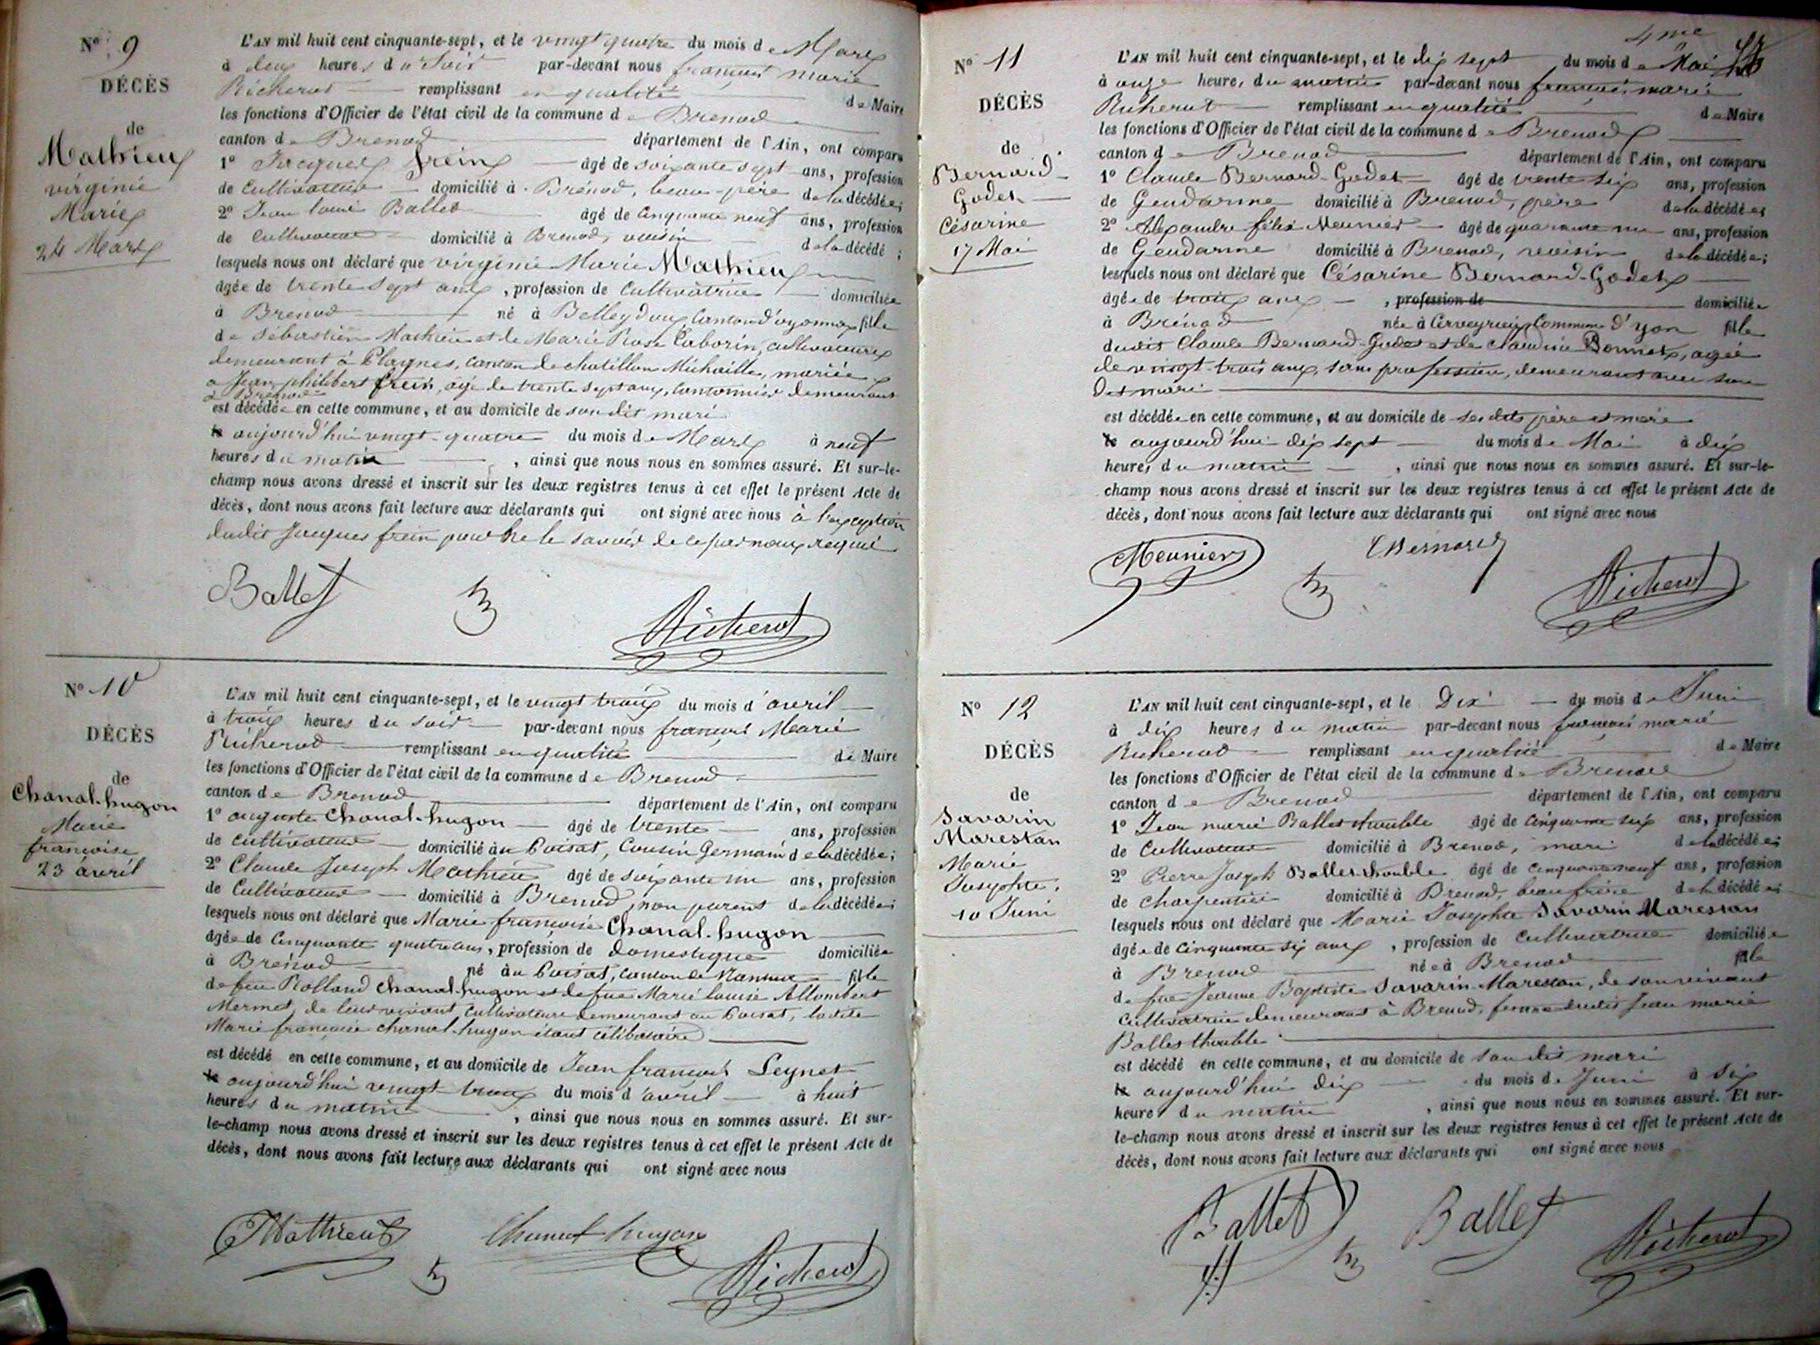 N° 9
DÉCÈS
de
Mathieu
virginie
Marie
24 Mars
L'AN mil huit cent cinquante-sept, et le vingt quatre du mois de Mars
à deux heures du Soir par-devant nous françois marie
Richerot remplissant en qualité de Maire
les fonctions d'Officier de l'état civil de la commune de Brenod
canton de Brenod département de l'Ain, ont comparu
1° Jacques frein âgé de soixante sept ans, profession
de Cultivateur domicilié à Brénod, beau-père de la décédée;
2° Jean louis Ballet âgé de Cinquante neuf ans, profession
de Cultivateur domicilié à Brenod, voisin de la décédé ;
lesquels nous ont déclaré que virginie Marie Mathieu
âgée de trente sept ans, profession de Cultivatrice domiciliée
à Brenod né à Belleydoux, Canton d'oyonnax fille
de Sébastien Mathieu et de Marie Rose Caborin, cultivateurs
demeurant à Plagnes, Canton de chatillon Michaille, mariée
a Jean philibert frein, âgé de trente sept ans, Cantonnier demeurant
à Brenod
est décédée en cette commune, et au domicile de son dit mari
le aujourd'hui vingt-quatre du mois de Mars à neuf
heures du matin , ainsi que nous nous en sommes assuré. Et sur-le-
champ nous avons dressé et inscrit sur les deux registres tenus à cet effet le présent Acte de
décès, dont nous avons fait lecture aux déclarants qui ont signé avec nous à l'exception
dudit Jacques frein pour ne le savoir de ce par nous requis
Ballet
Richerot
N° 10
DÉCÈS
de
Chanal-hugon
Marie
françoise
23 avril
L'AN mil huit cent cinquante-sept, et le vingt trois du mois d'avril
à trois heures du soir par-devant nous françois Marie
Richerod remplissant en qualité de Maire
les fonctions d'Officier de l'état civil de la commune de Brenod
canton de Brenod département de l'Ain, ont comparu
1° auguste Chanal-hugon âgé de trente ans, profession
de cultivateur domicilié au Poisat, Cousin Germain de la décédée;
2° Claude Joseph Mathieu âgé de soixante un ans, profession
de Cultivateur domicilié à Brenod, non parent de la décédée;
lesquels nous ont déclaré que Marie françoise Chanal-hugon
âgée de Cinquante quatre ans, profession de domestique domiciliée
à Brénod né au Poisat, canton de Nantua fille
de feu Rolland Chanal-hugon et de feue Marie louise Allombert
Mermet, de leur vivant cultivateurs demeurant au Poisat, ladite
Marie françoise chanal-hugon étant célibataire
est décédé en cette commune, et au domicile de Jean francois Leynet
le aujourd'hui vingt trois du mois d'avril à huit
heures du matin , ainsi que nous nous en sommes assuré. Et sur-
le-champ nous avons dressé et inscrit sur les deux registres tenus à cet effet le présent Acte de
décès, dont nous avons fait lecture aux déclarants qui ont signé avec nous
Mathieu
Chanal hugon
Richerot
4me
N° 11
DÉCÈS
de
Bernard-
Godet
Césarine
17 Mai
L'AN mil huit cent cinquante-sept, et le dix sept du mois de Mai
à onze heures du matin par-devant nous françois marie
Richerot remplissant en qualité de Maire
les fonctions d'Officier de l'état civil de la commune de Brenod
canton de Brenod département de l'Ain, ont comparu
1° Claude Bernard-Godet âgé de trente six ans, profession
de Gendarme domicilié à Brenod, père de la décédée;
2° Alexandre félix Meunier âgé de quarante un ans, profession
de Gendarme domicilié à Brenod, voisin de la décédée;
lesquels nous ont déclaré que Césarine Bernard-Godet
âgée de trois ans , profession de domiciliée
à Brénod née à Cerveyrieux Commune d'yon fille
dudit Claude Bernard-Godet et de claudine Bonnet, agée
de vingt-trois ans, sans profession, demeurant avec son
dit mari
est décédée en cette commune, et au domicile de ses dits père et mère
le aujourd'hui dix sept du mois de Mai à dix
heures du matin , ainsi que nous nous en sommes assuré. Et sur-le-
champ nous avons dressé et inscrit sur les deux registres tenus à cet effet le présent Acte de
décès, dont nous avons fait lecture aux déclarants qui ont signé avec nous
Meuniers
CBernard
Richerot
N° 12
DÉCÈS
de
Savarin
Marestan
Marie
Josephte
10 Juin
L'AN mil huit cent cinquante-sept, et le Dix du mois de Juin
à dix heures du matin par-devant nous françois marie
Richerot remplissant en qualité de Maire
les fonctions d'Officier de l'état civil de la commune de Brenod
canton de Brenod département de l'Ain, ont comparu
1° Jean marie Ballet thouble âgé de cinquante six ans, profession
de Cultivateur domicilié à Brenod, mari de la décédée;
2° Pierre Joseph Ballet-thouble âgé de cinquante neuf ans, profession
de charpentier domicilié à Brenod, beau frère de la décédée;
lesquels nous ont déclaré que Marie Josephte Savarin Marestan
âgée de cinquante six ans , profession de Cultivatrice domiciliée
à Brenod née à Brenod fille
de feue Jeanne Baptiste Savarin-Marestan, de son vivant
Cultivatrice demeurant à Brenod, femme dudit Jean marie
Ballet thouble
est décédé en cette commune, et au domicile de son dit mari
le aujourd'hui dix du mois de Juin à six
heures du matin , ainsi que nous nous en sommes assuré. Et sur-
le-champ nous avons dressé et inscrit sur les deux registres tenus à cet effet le présent Acte de
décès, dont nous avons fait lecture aux déclarants qui ont signé avec nous
Ballet
Ballet
Richerot